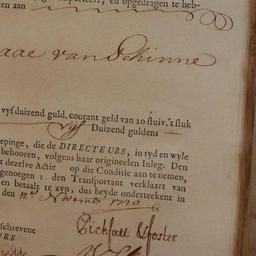 en opgedragen te heb-
en aan
van Schinne
vyf duizend guld. courant geld van 20 stuiv.'t stuk
vyf Duizend guldens
epinge, die de DIRECTEURS, in tyd en wyle
behooren, volgens haar origineelen Inleg. Den
t dezelve Actie op die Conditie aan te nemen,
genoegen: den Transportant verklaart van
en betaalt te zyn; dus beyde onderteekent in
den 12 Novemb 1720
schrevene
URS